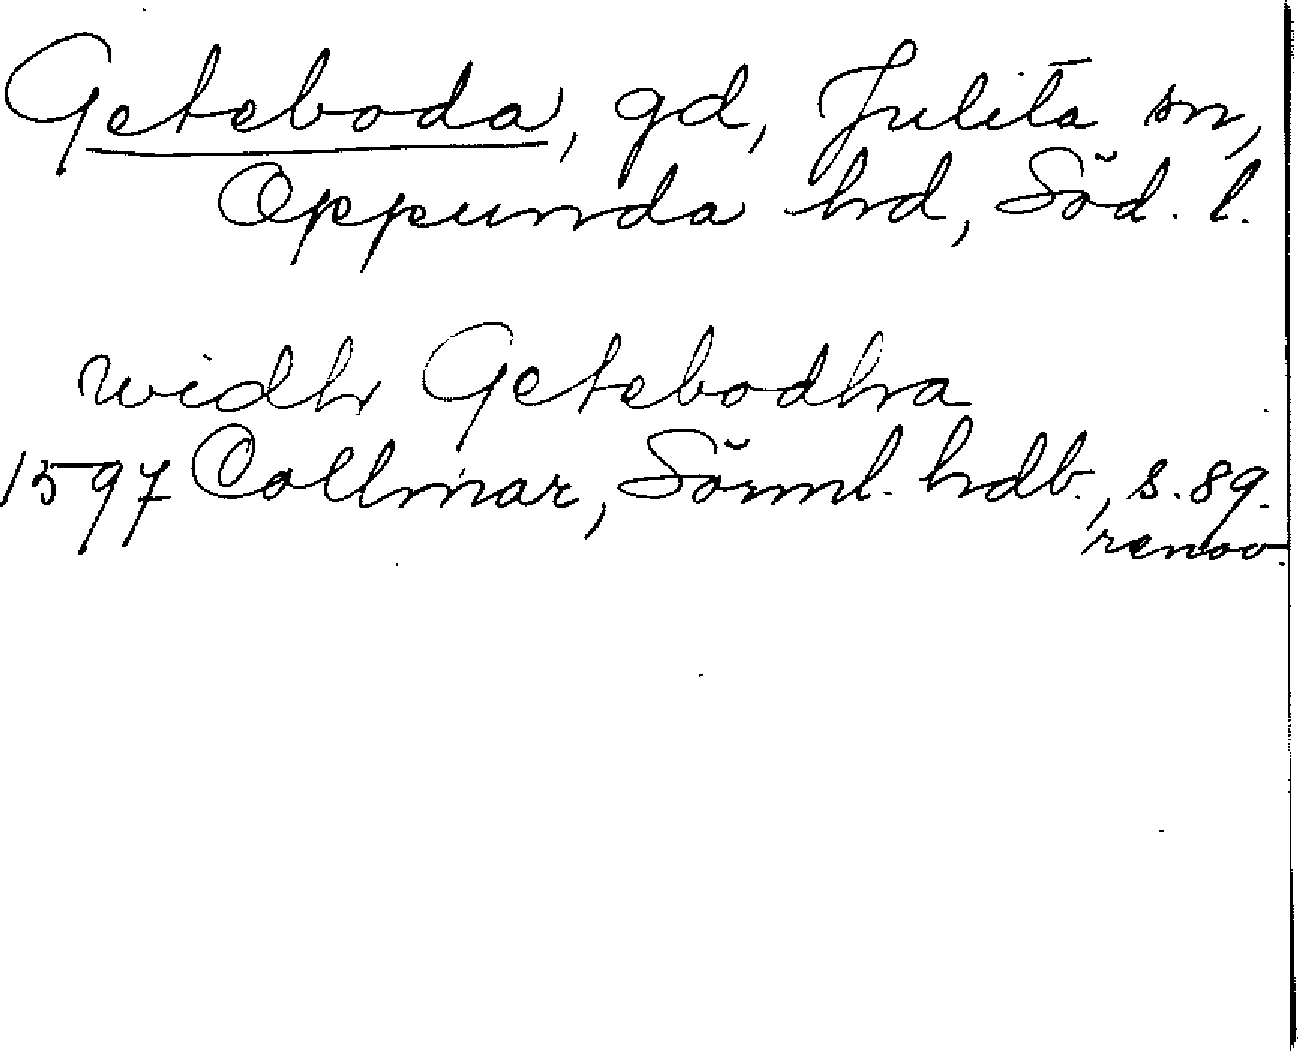 Geteboda, gd, Julita sn,
Oppunda hd, Söd. l.
widh Getebodha
1597 Collmar, Sörml. hdb., s. 89.
renov.